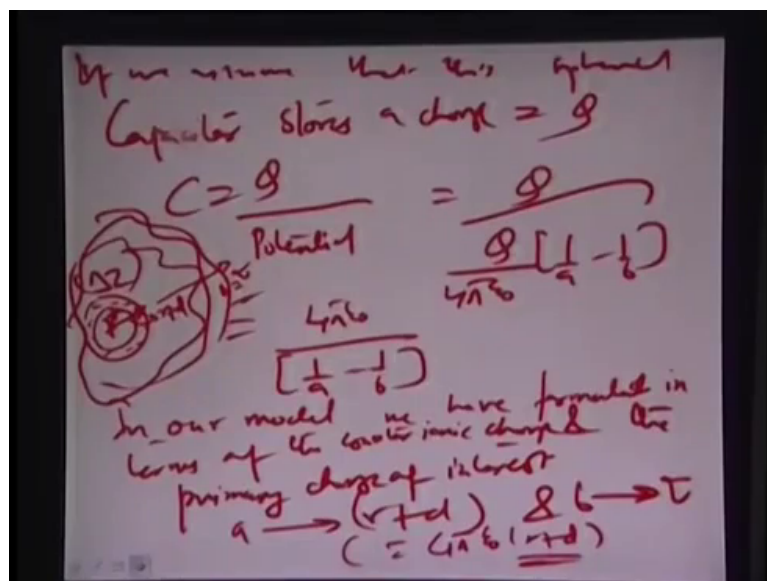 If we assume that this spherical
Capacitor stores a charge = Q
C = Q / Potential = Q / Q/4πε₀ [1/a - 1/b]
= 4πε₀ / [1/a - 1/b]
In our model we have formulated in
terms of the counter ionic charge & the
primary charge of interest
a → (r+d) & b → τ
C = 4πε₀ (r+d)